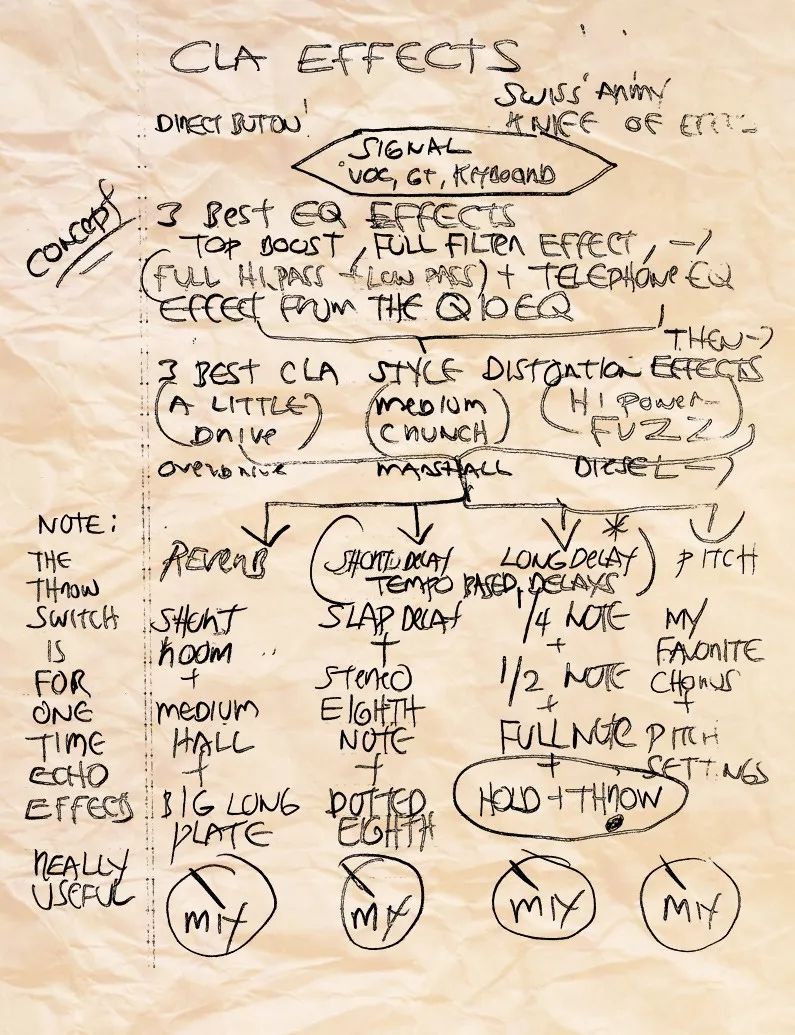 CLA EFFECTS
SWISS ARMY
DIRECT BUTTON!
KNIFE OF
SIGNAL
VOC, GT, KEYBOARD
CONCEPT
3 BEST EQ EFFECTS
TOP BOOST, FULL FILTER EFFECT, →
(FULL HI PASS + LOW PASS) + TELEPHONE EQ
EFFECT FROM THE Q10 EQ
THEN →
3 BEST CLA STYLE DISTORTION EFFECTS
(A LITTLE DRIVE) (MEDIUM CRUNCH) (HI POWER- FUZZ)
OVERDRIVE MARSHALL DIESEL →
NOTE:
THE
THROW
SWITCH
IS
FOR
ONE
TIME
ECHO
EFFECTS
REALLY
USEFUL
REVERB
SHORT
ROOM
+
MEDIUM
HALL
+
BIG LONG
PLATE
MIX
(SHORT DELAY LONG DELAY *)
TEMPO BASED, DELAYS
SLAP DELAY
+
STEREO
EIGHTH
NOTE
+
DOTTED
EIGHTH
MIX
1/4 NOTE
+
1/2 NOTE
+
FULL NOTE
+
HOLD + THROW
MIX
PITCH
MY
FAVORITE
CHORUS
+
PITCH
SETTINGS
MIX